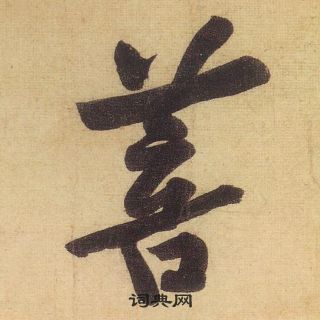 善
词典网